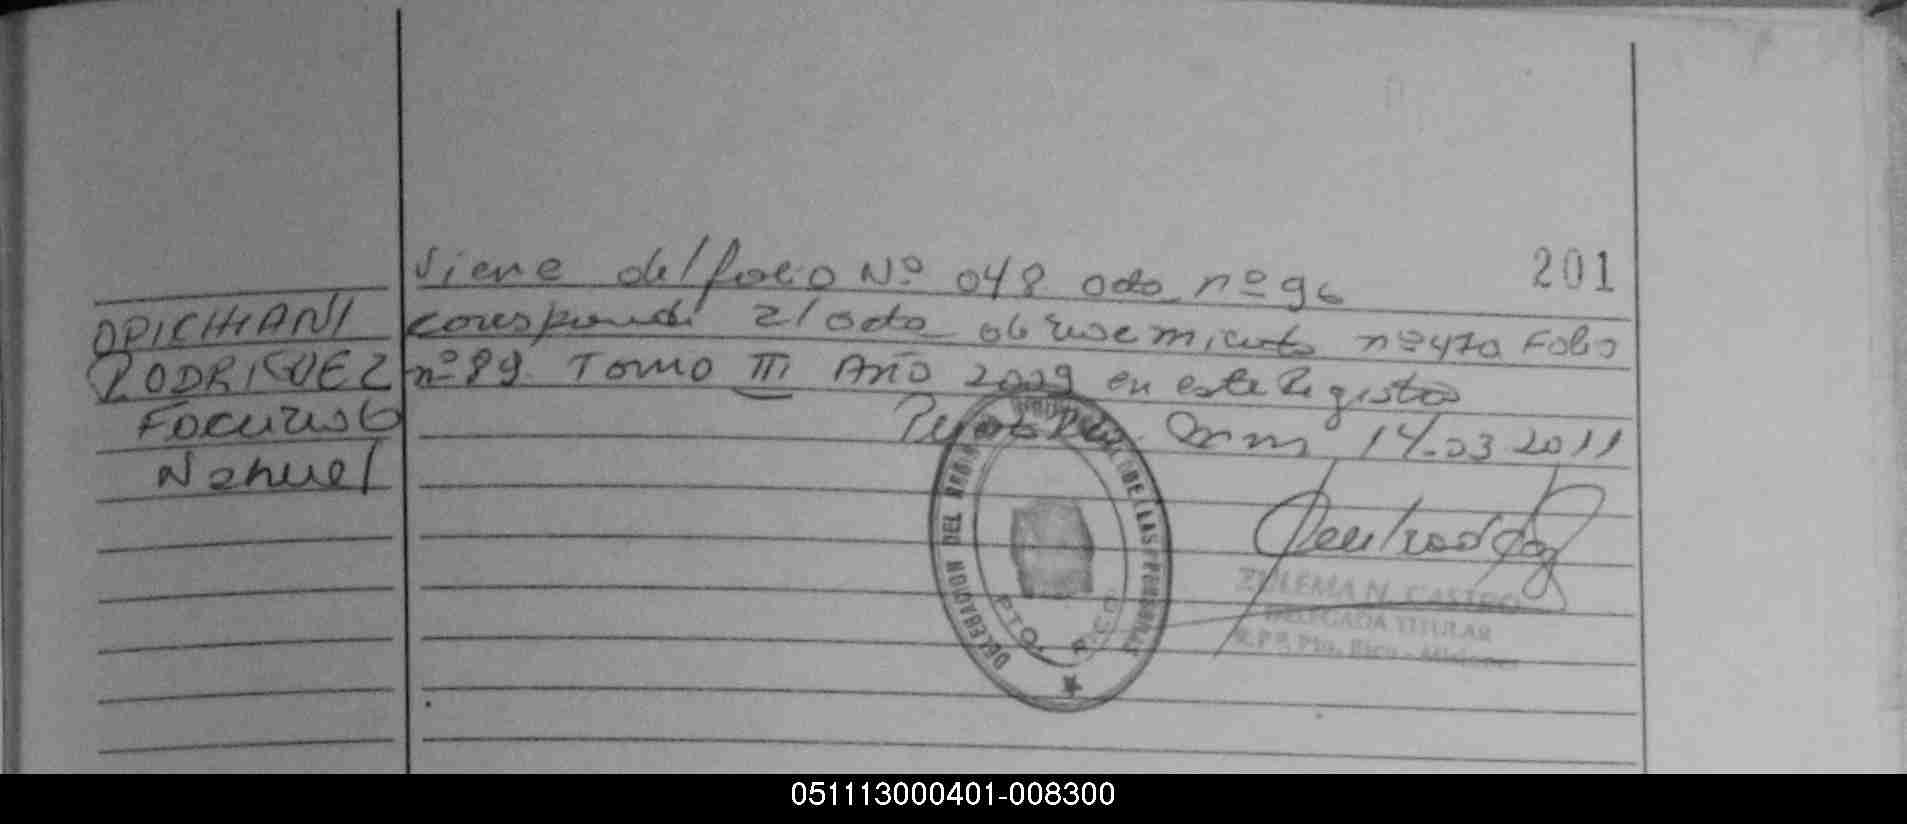 201
Viene del folio Nº 048 acta nº 96
corresponde al acta de nacimiento nº 470 Folio
nº 89 Tomo III Año 2009 en este Registro
Puerto Rico. Mnes 14-03 2011
OPICHHANI
RODRIGUEZ
Facundo
Nahuel
DELEGACION DEL REGISTRO DE LAS PERSONAS
PTO. RICO
ZULEMA N. CASTRO
DELEGADA TITULAR
R.P.P. Pto. Rico - Misiones
051113000401-008300